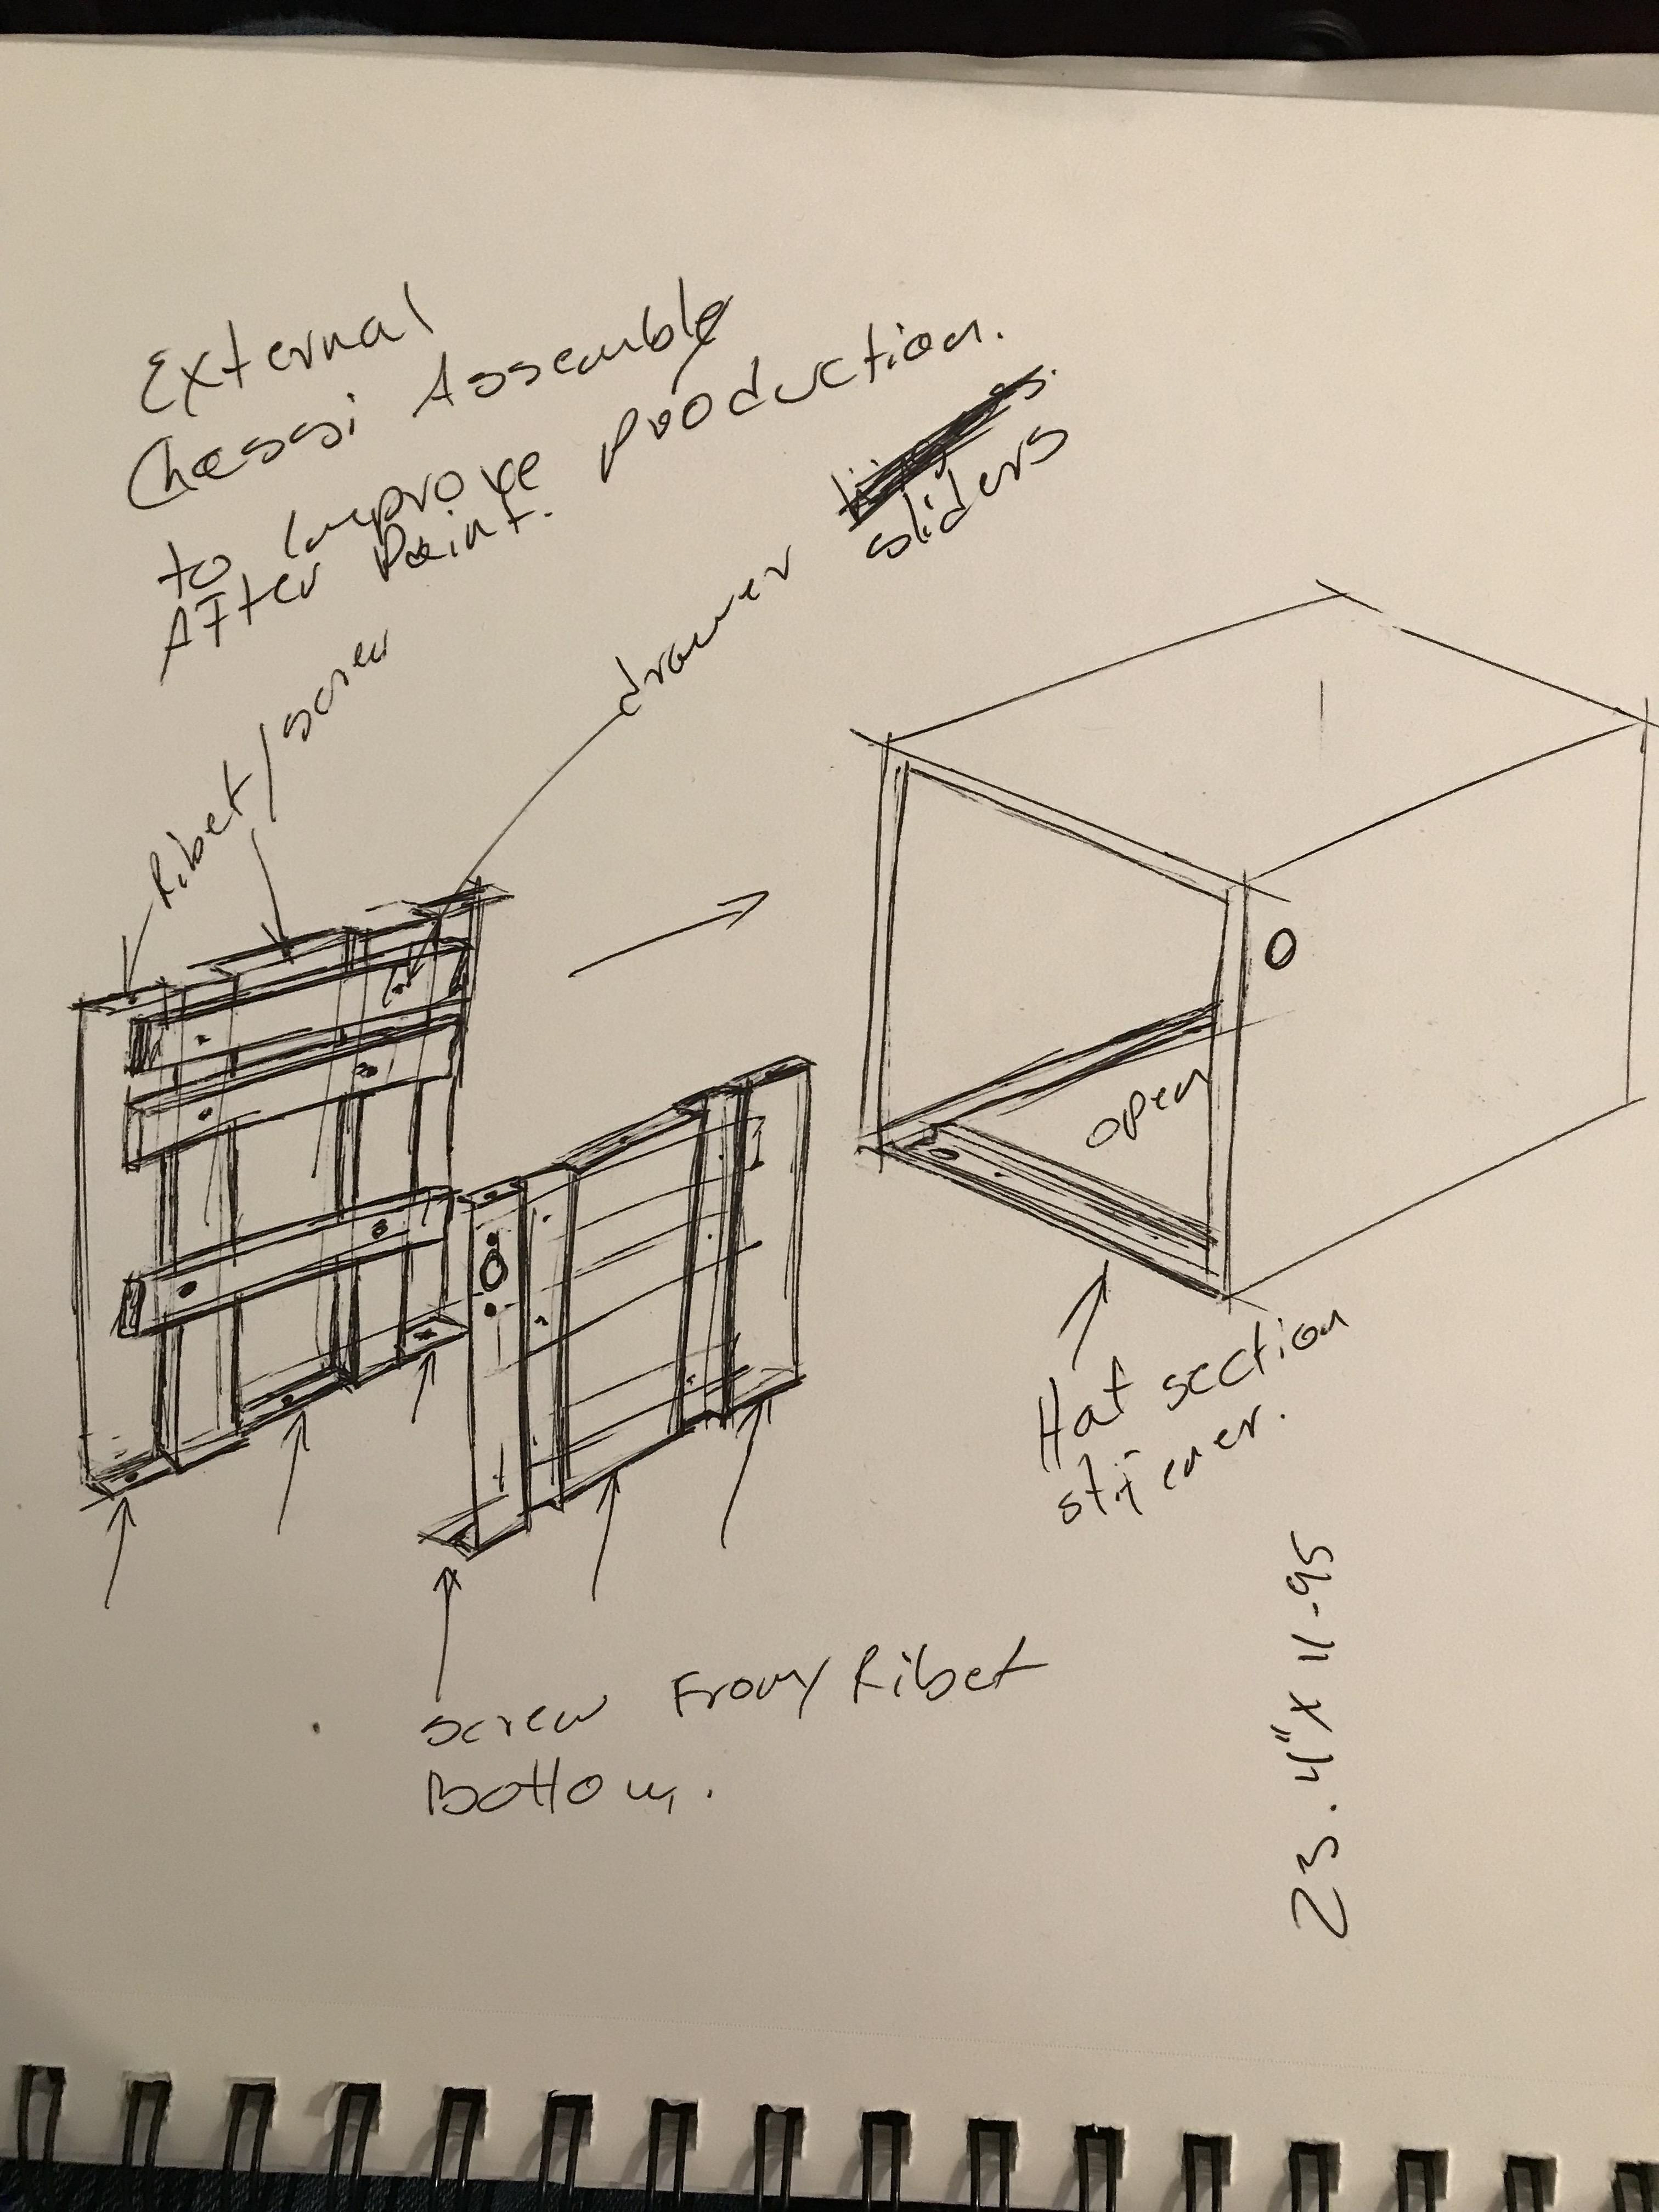 External
Chassi Assemble
to Improve production.
After Paint.
Ribet/screw
drawer
sliders
open
Hat section
stifener.
screw From/Ribet
Bottom.
23.4"x 11-95